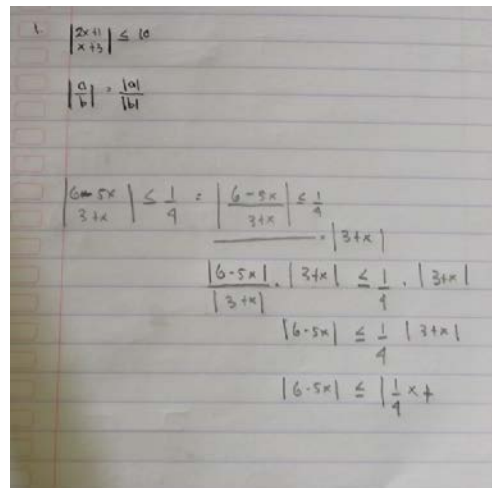 1. |2x+1 / x+3| ≤ 10
|a/b| = |a|/|b|
|6-5x / 3+x| ≤ 1/4 = |6-5x / 3+x| ≤ 1/4
· |3+x|
|6-5x|/|3+x| · |3+x| ≤ 1/4 · |3+x|
|6-5x| ≤ 1/4 |3+x|
|6-5x| ≤ |1/4 x +